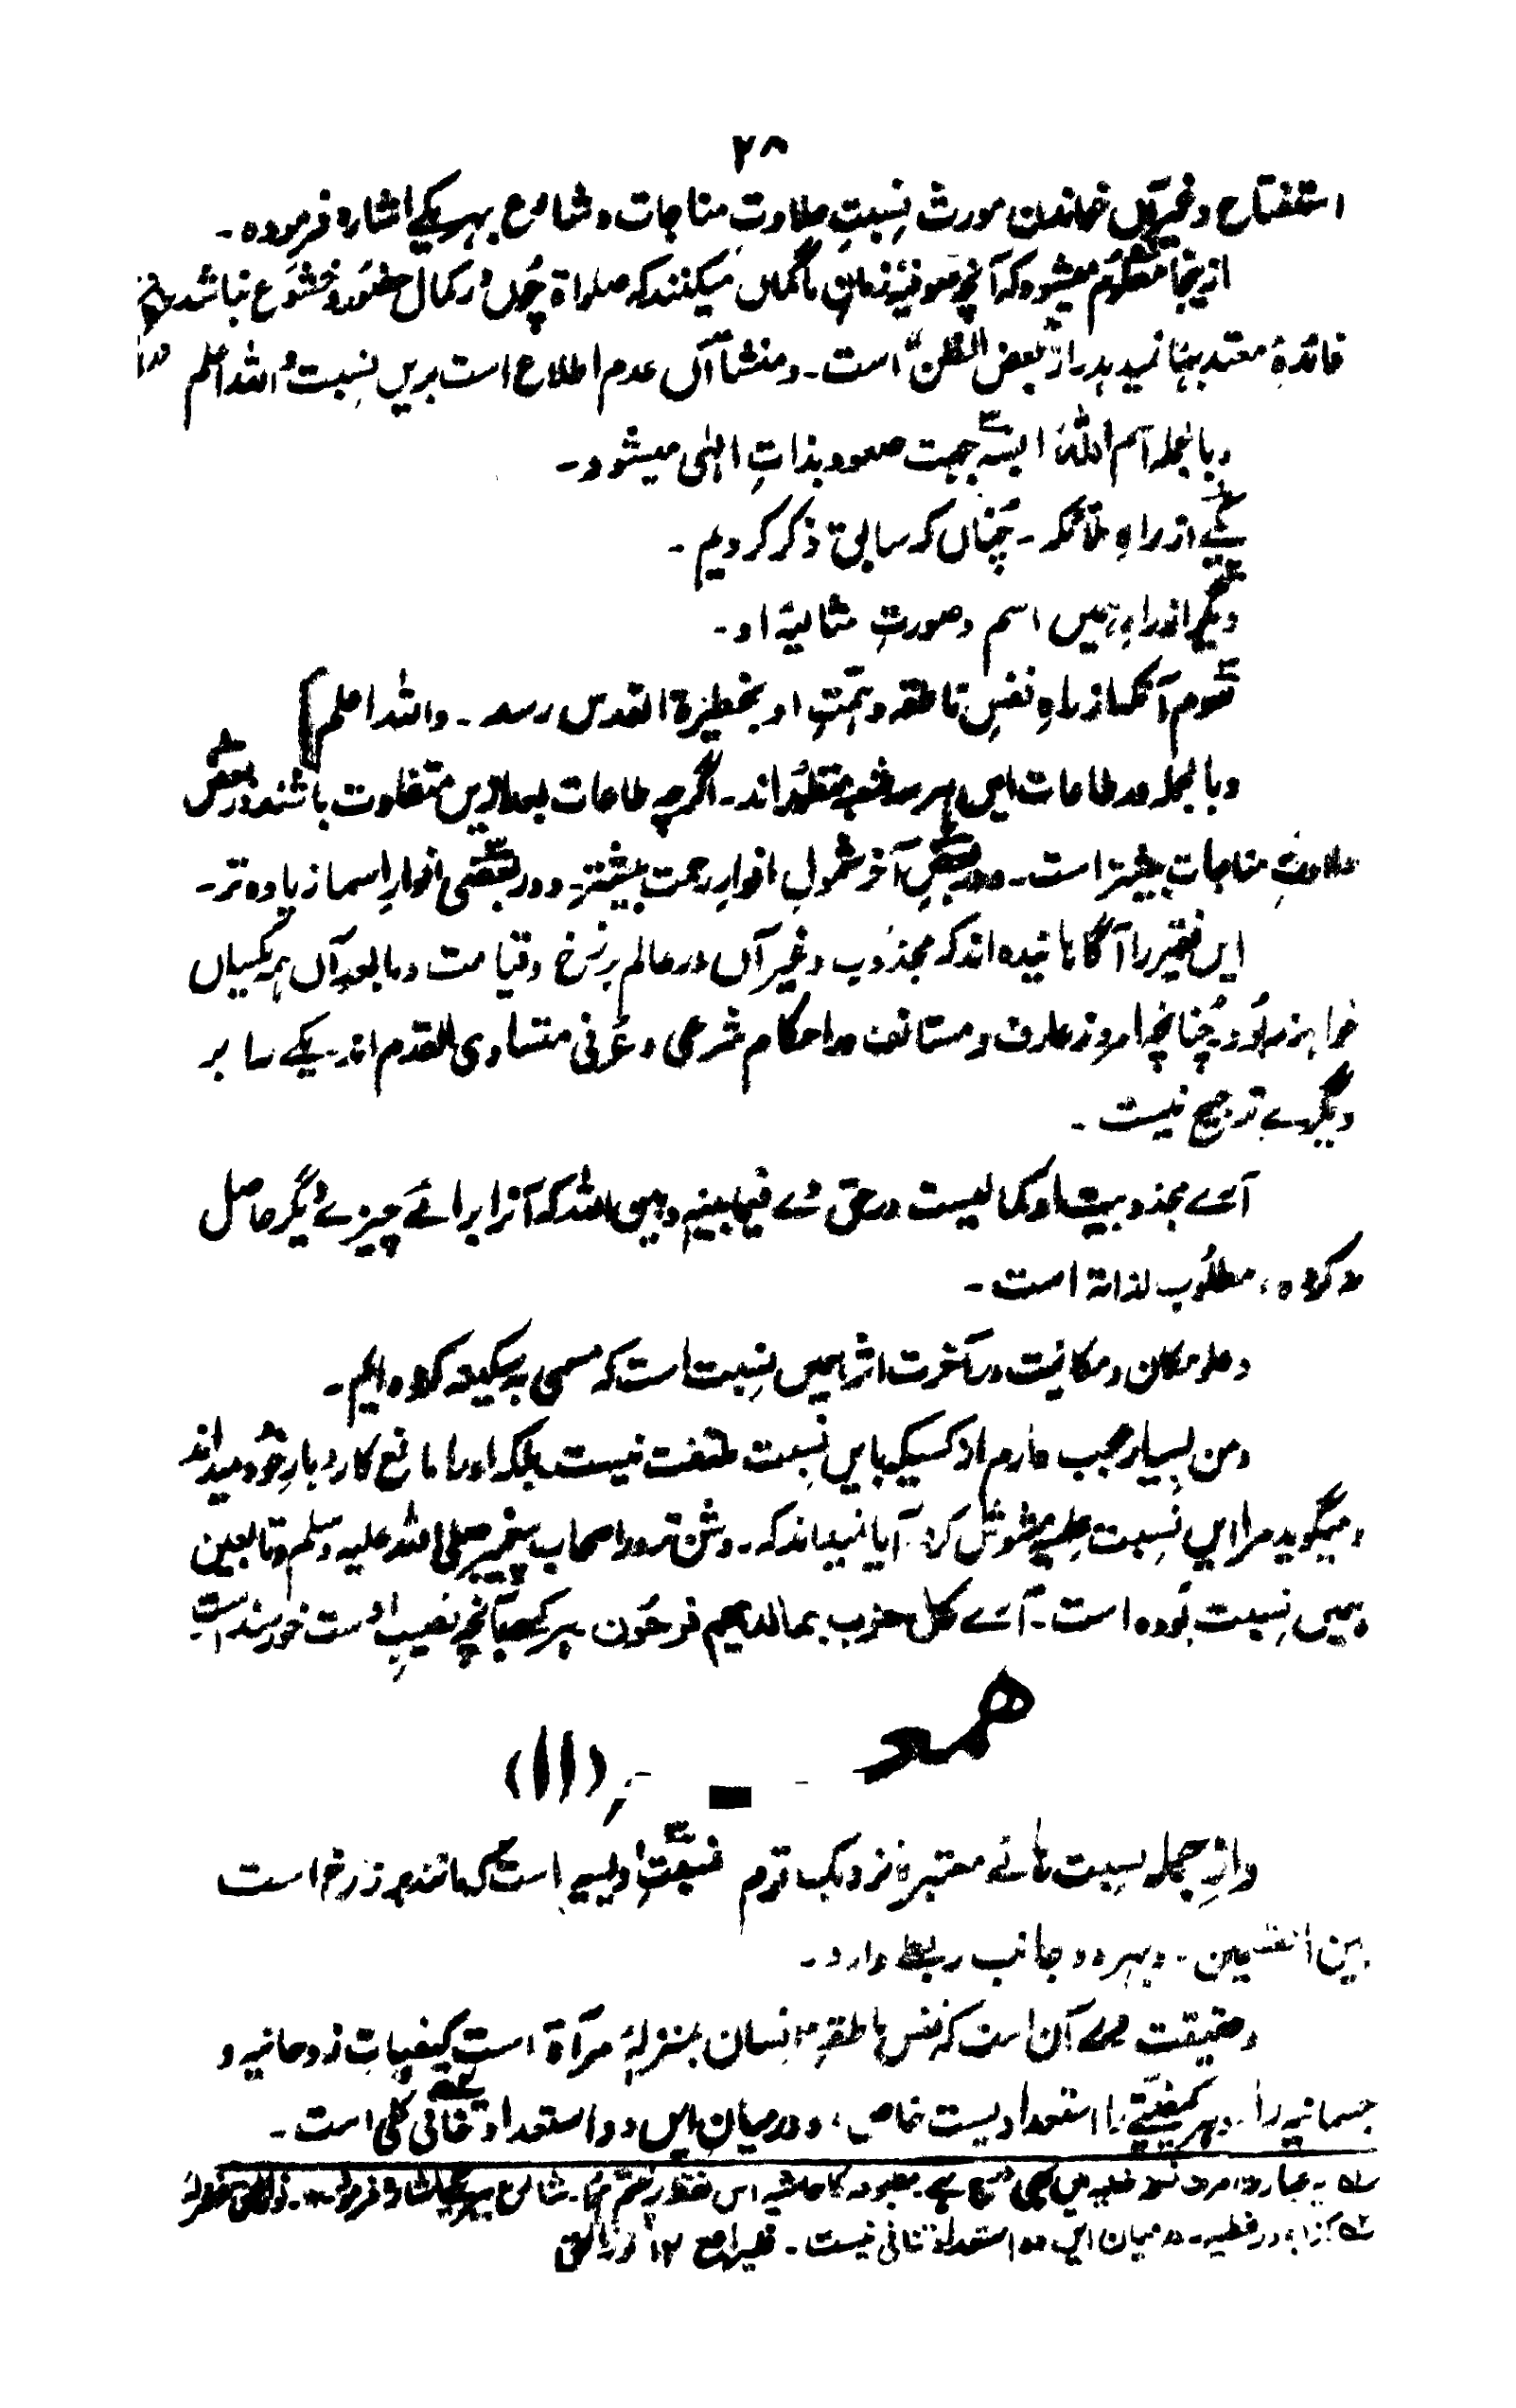 ۲۸
استفتاح و غیر آں خواندن مورث نسبتِ حلاوتِ مناجات و شارع بہر یکے اشارہ فرمودہ۔
ازینجا مفہوم میشود کہ آنچہ صوفیۂ زمان ما گماں میکنند کہ صلواۃ چوں در کمال حضور و خشوع نباشد
فائدۂ معتد بہا نمیدہد از بعض الظن است۔ و منشأ آں عدم اطلاع است بریں نسبت و اللہ اعلم
و بالجملہ اسم اللہ را بسہ جہت صعود بذاتِ الٰہی میشود۔
یکے از راہِ ملائکہ۔ چناں کہ سابق ذکر کردیم۔
دیگر از راہ ہمیں اسم و صورتِ مثالیۂ او۔
سوم آنکہ از راہِ نفسِ ناطقہ و ہمتِ او بخطیرۃ القدس رسد۔ واللہ اعلم]
و بالجملہ در طاعات ایں ہر سہ شعبہ مظہر اند۔ اگرچہ طاعات بعد ازیں متفاوت باشند در بعض
حلاوتِ مناجات بیشتر است۔ و در بعضِ آخر شمولِ انوارِ رحمت بیشتر۔ و در بعضی انوارِ اسما زیادہ تر۔
ایں فقیر را آگاہانیدہ اند کہ مجذوب و غیر آں در عالم برزخ و قیامت و مابعد آں ہمہ یکساں
خواہند بود۔ چنانچہ امروز عارف و مستانف در احکام شرعی و عرفی متساوی القدم اند۔ یکے را بر
دیگرے ترجیح نیست۔
آرے مجذوبیت او کمالیست در حق وے فیما بینہ و بین اللہ کہ آنرا برائے چیزے دیگر حاصل
نہ کردہ، مطلوب لذاتہ است۔
و علو مکان و مکانیت در آخرت اثر ہمیں نسبت است کہ مسمی بہ سکینہ کردہ ایم۔
و من بسیار عجب دارم از کسیکہ بایں نسبت ملتفت نیست بلکہ او را مانع کاروبارِ خود میداند
و میگوید مرا ایں نسبت علمیہ مشوش کرد آیا نمیداند کہ۔ روشن تر در اصحاب پیغمبر صلی اللہ علیہ وسلم و تابعین
ہمیں نسبت بودہ است۔ آرے کل حزب بمالدیھم فرحون ہر کسے بآنچہ نصیب اوست خورسند است
ھمعہ ـ (۱۱)
و از جملہ نسبت ہائے معتبرہ نزدیک قوم نسبت اویسیہ است کہ مانند برزخ است
بین القسمین۔ و بہر دو جانب ربطے دارد۔
و حقیقت وے آن است کہ نفس ناطقہ انسان بمنزلۂ مرآۃ است کیفیات روحانیہ و
جسمانیہ را۔ و بہر کیفیتے را استعدادیست خاص، و درمیان ایں دو استعداد تخالفی کلی است۔
لہ یہ عبارت صرف نسخہ خطیہ میں ہی درج ہے۔ مطبوعہ کا حاشیہ اس فقرہ پر ختم ہوا۔ شارع بہر یکے اشارہ فرمودہ۔
لہ کذا در خطیہ۔ درمیان ایں دو استعداد تنافی نیست۔ فلیراجع ۱۲ نور الحق